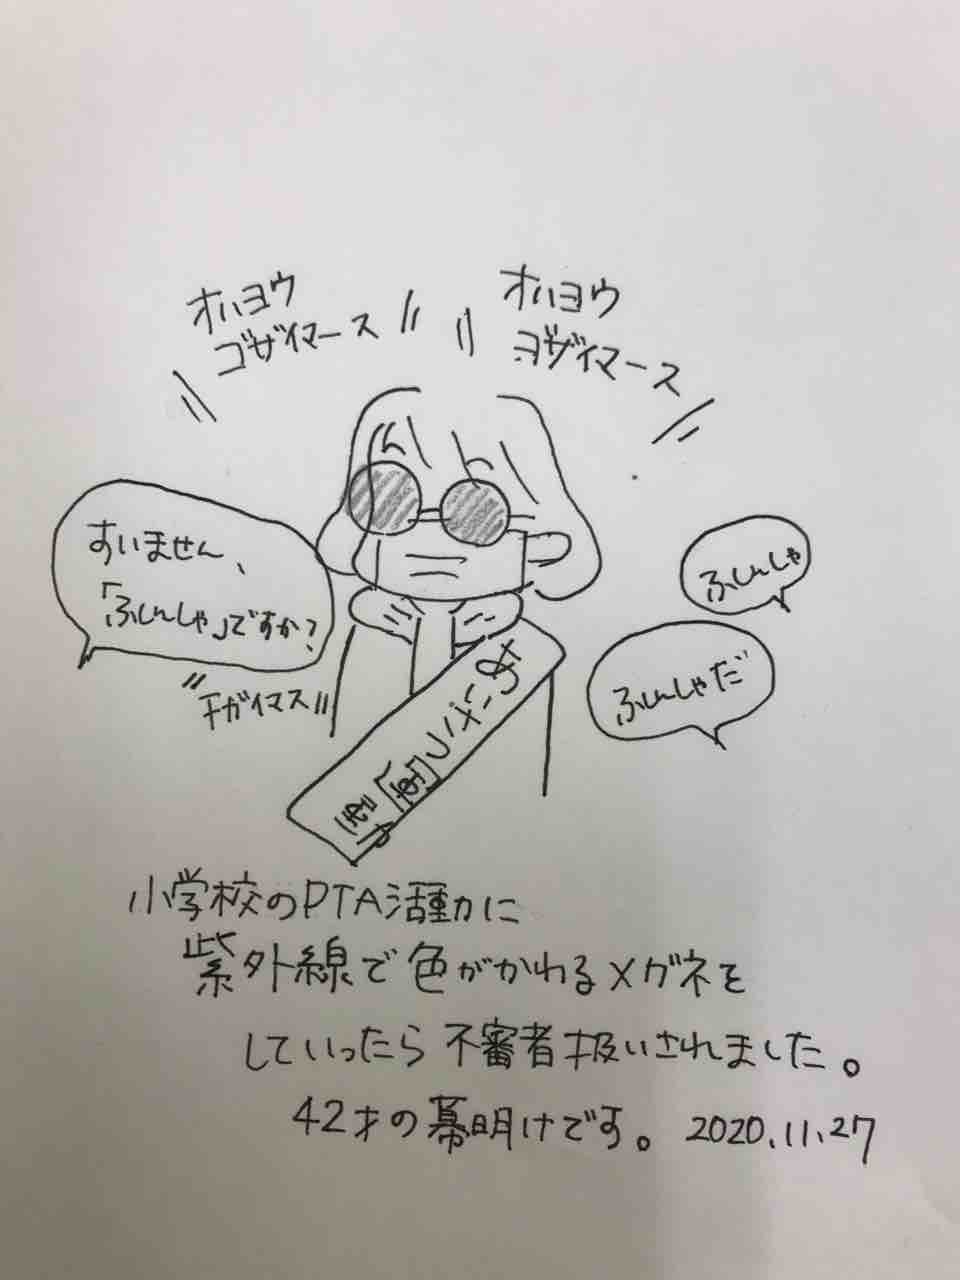 オハヨウ
ゴザイマース
オハヨウ
ゴザイマース
すいません、
「ふしんしゃ」ですか?
チガイマス
ふしんしゃ
ふしんしゃだ
あいさつ運動
小学校のPTA活動に
紫外線で色がかわるメガネを
していったら不審者扱いされました。
42才の幕明けです。2020.11.27